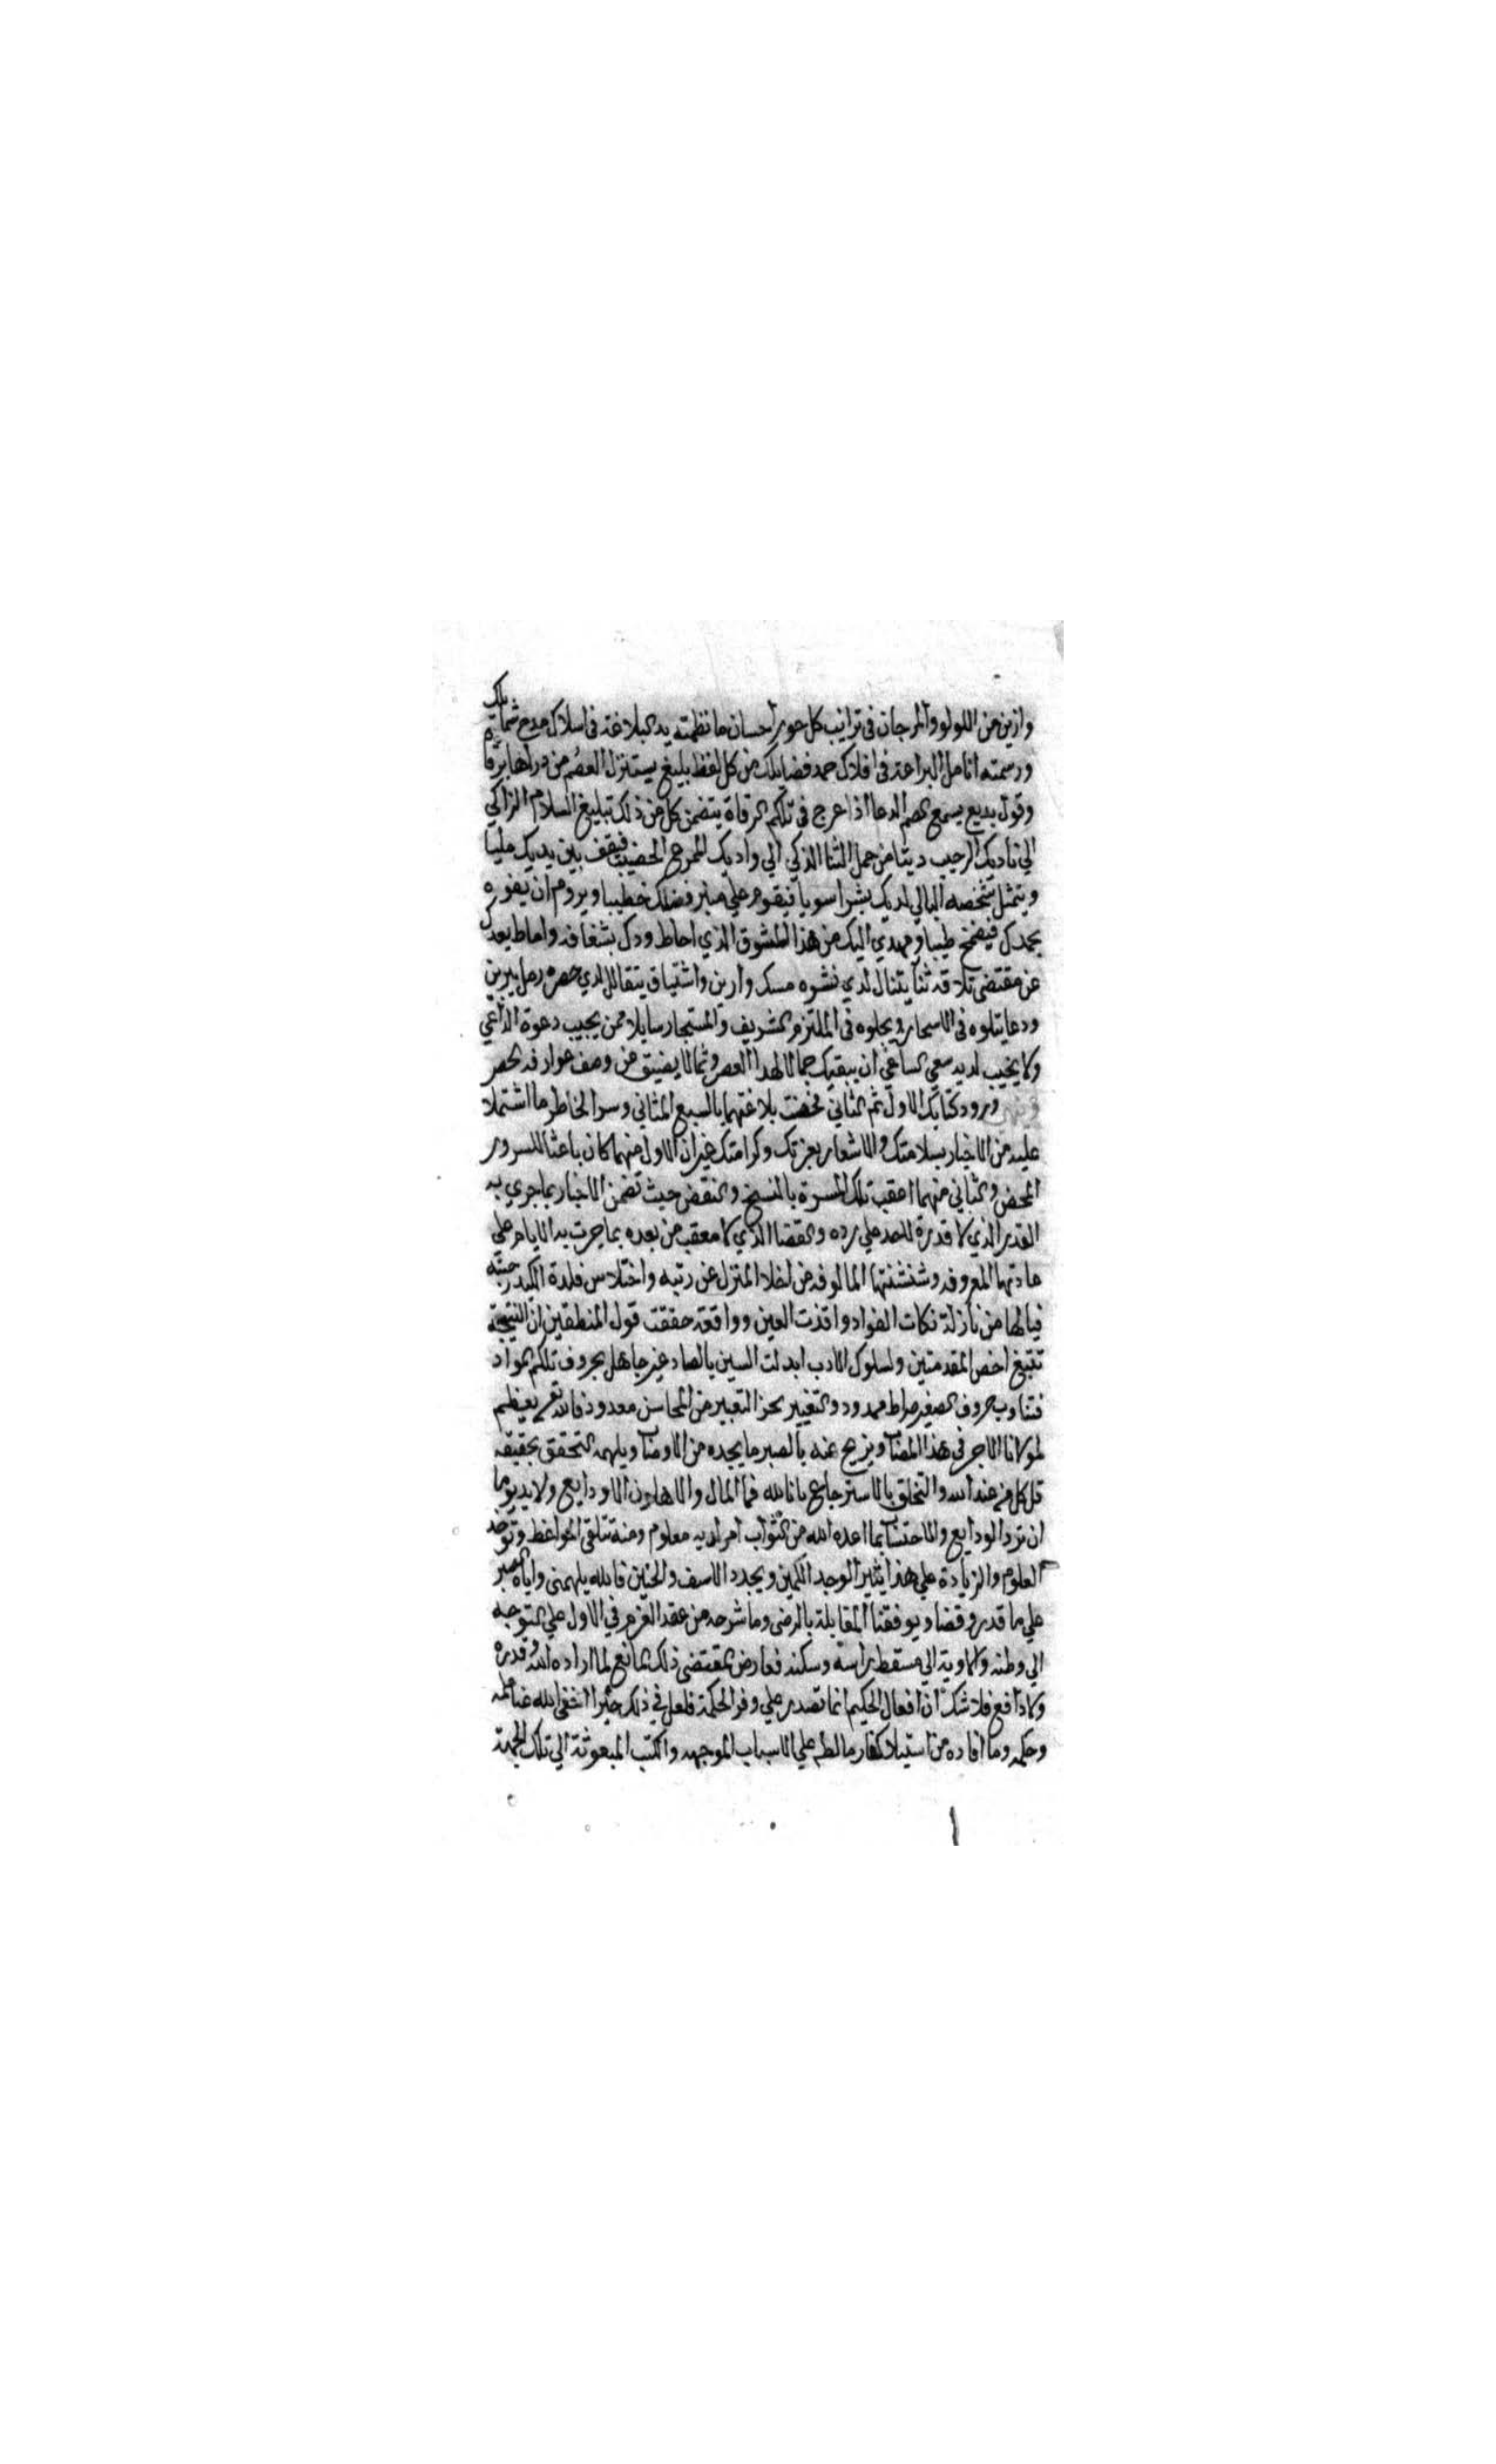 وازين من اللولو والمرجان في ترايب كل حور حسان ما نظمته يد البلاغة في اسلاك مدح شمايلك
ورسمته انامل البراعة في افلاك حمد فضايلك من كل لفظ بليغ يستنزل العصم من ذراها برقاه
وقول بديع يسمع الصم الدعا اذا عرج في تلكم الرقاة يتضمن كل من ذلك تبليغ السلام الزاكي
الي ناديك الرحيب ديتا من حمل الثنا الذكي الي واديك الممرع الخصيب فيقف بين يديك مليا
ويتمثل شخصه البالي لديك بشرا سويا فيقوم علي منبر فضلك خطيبا ويروم ان يفوه
بحمدك فيضمخ طيبا ويهدي اليك من هذا المشوق الذي احاط ودك بشغافه واماط بعدك
عن مقتضى تلاقه ثنا يتنال لدي نشره مسك دارين واشتياق يتقالل لدي حصره رمل يبرين
ودعا يتلوه في الاسحار ويجلوه في الملتزم الشريف والمستجار سايلا ممن يجيب دعوة الداعي
ولا يخيب لديه سعي الساعي ان يبقيك جمالا لهذا العصر وثمالا يضيق عن وصف عوارفه الحصر
وينهي ورود كتابك الاول ثم الثاني فحصنت بلاغتهما بالسبع المثاني وسر الخاطر ما اشتملا
عليه من الاخبار بسلامتك والاشعار بعزتك وكرامتك غير ان الاول منهما كان باعثا للسرور
المحض والثاني منهما اعقب تلك المسرة بالنسخ والنقض حيث تضمن الاخبار بما جري به
القدر الذي لا قدرة للعبد علي رده والقضا الذي لا معقب من بعده بما جرت به الايام علي
عادتها المعروفه وشنشنتها المالوفه من اخلا المنزل عن ربته واختلاس فلذة الكبد حبته
فيالها من نازلة نكات الفواد واقذت العين وواقعة حققت قول المنطقين ان النتيجة
تتبع اخص المقدمتين ولسلوك الادب ابدلت السين بالصاد غير جاهل بحروف تلكم المواد
فتناوب حروف الصفير صراط ممدود والتغيير بحز التعبير من المحاسن معدود فالله تعالى يعظم
لمولانا الاجر في هذا المصاب ويزيح عنه بالصبر ما يجده من الاوصاب ويلهمه التحقق بحقيقة
قل كل من عند الله والتخلق بالاسترجاع بانا لله فما المال والاهلون الا ودايع ولا بد يوما
ان ترد الودايع والاحتساب بما اعده الله من الثواب امر لديه معلوم ومنه تتلقى المواعظ وتوخذ
العلوم والزيادة علي هذا يثير الوجد الكمين ويجدد الاسف والحنين فالله يلهمني واياه الصبر
علي ما قدر وقضا ويوفقنا المقابلة بالرضى وما شرحه من عقد العزم في الاول علي التوجه
الي وطنه والاوبة الي مسقط راسه وسكنه فعارض المقتضى ذلك المانع لما اراده الله وقدره
ولا دافع فلا شك ان افعال الحكيم انما تصدر علي وفر الحكمة فلعل في ذلك خيرا اخفى الله عنا علمه
وحكمه وما افاده من استيلا كفار مالطه علي الاسباب الموجهه والكتب المبعوثة الي تلك الجهة